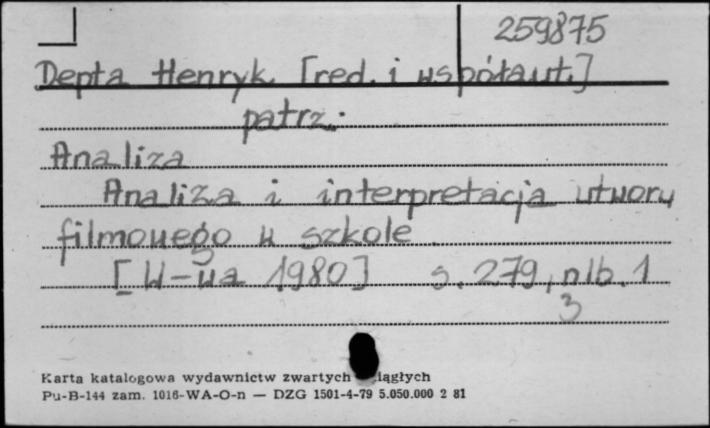 259875
Depta Henryk [red. i współaut.]
patrz:
Analiza
Analiza i interpretacja utworu
filmowego w szkole
[W-wa 1980] s. 279, nlb. 1
3
Karta katalogowa wydawnictw zwartych iągłych
Pu-B-144 zam. 1016-WA-O-n — DZG 1501-4-79 5.050.000 2 81